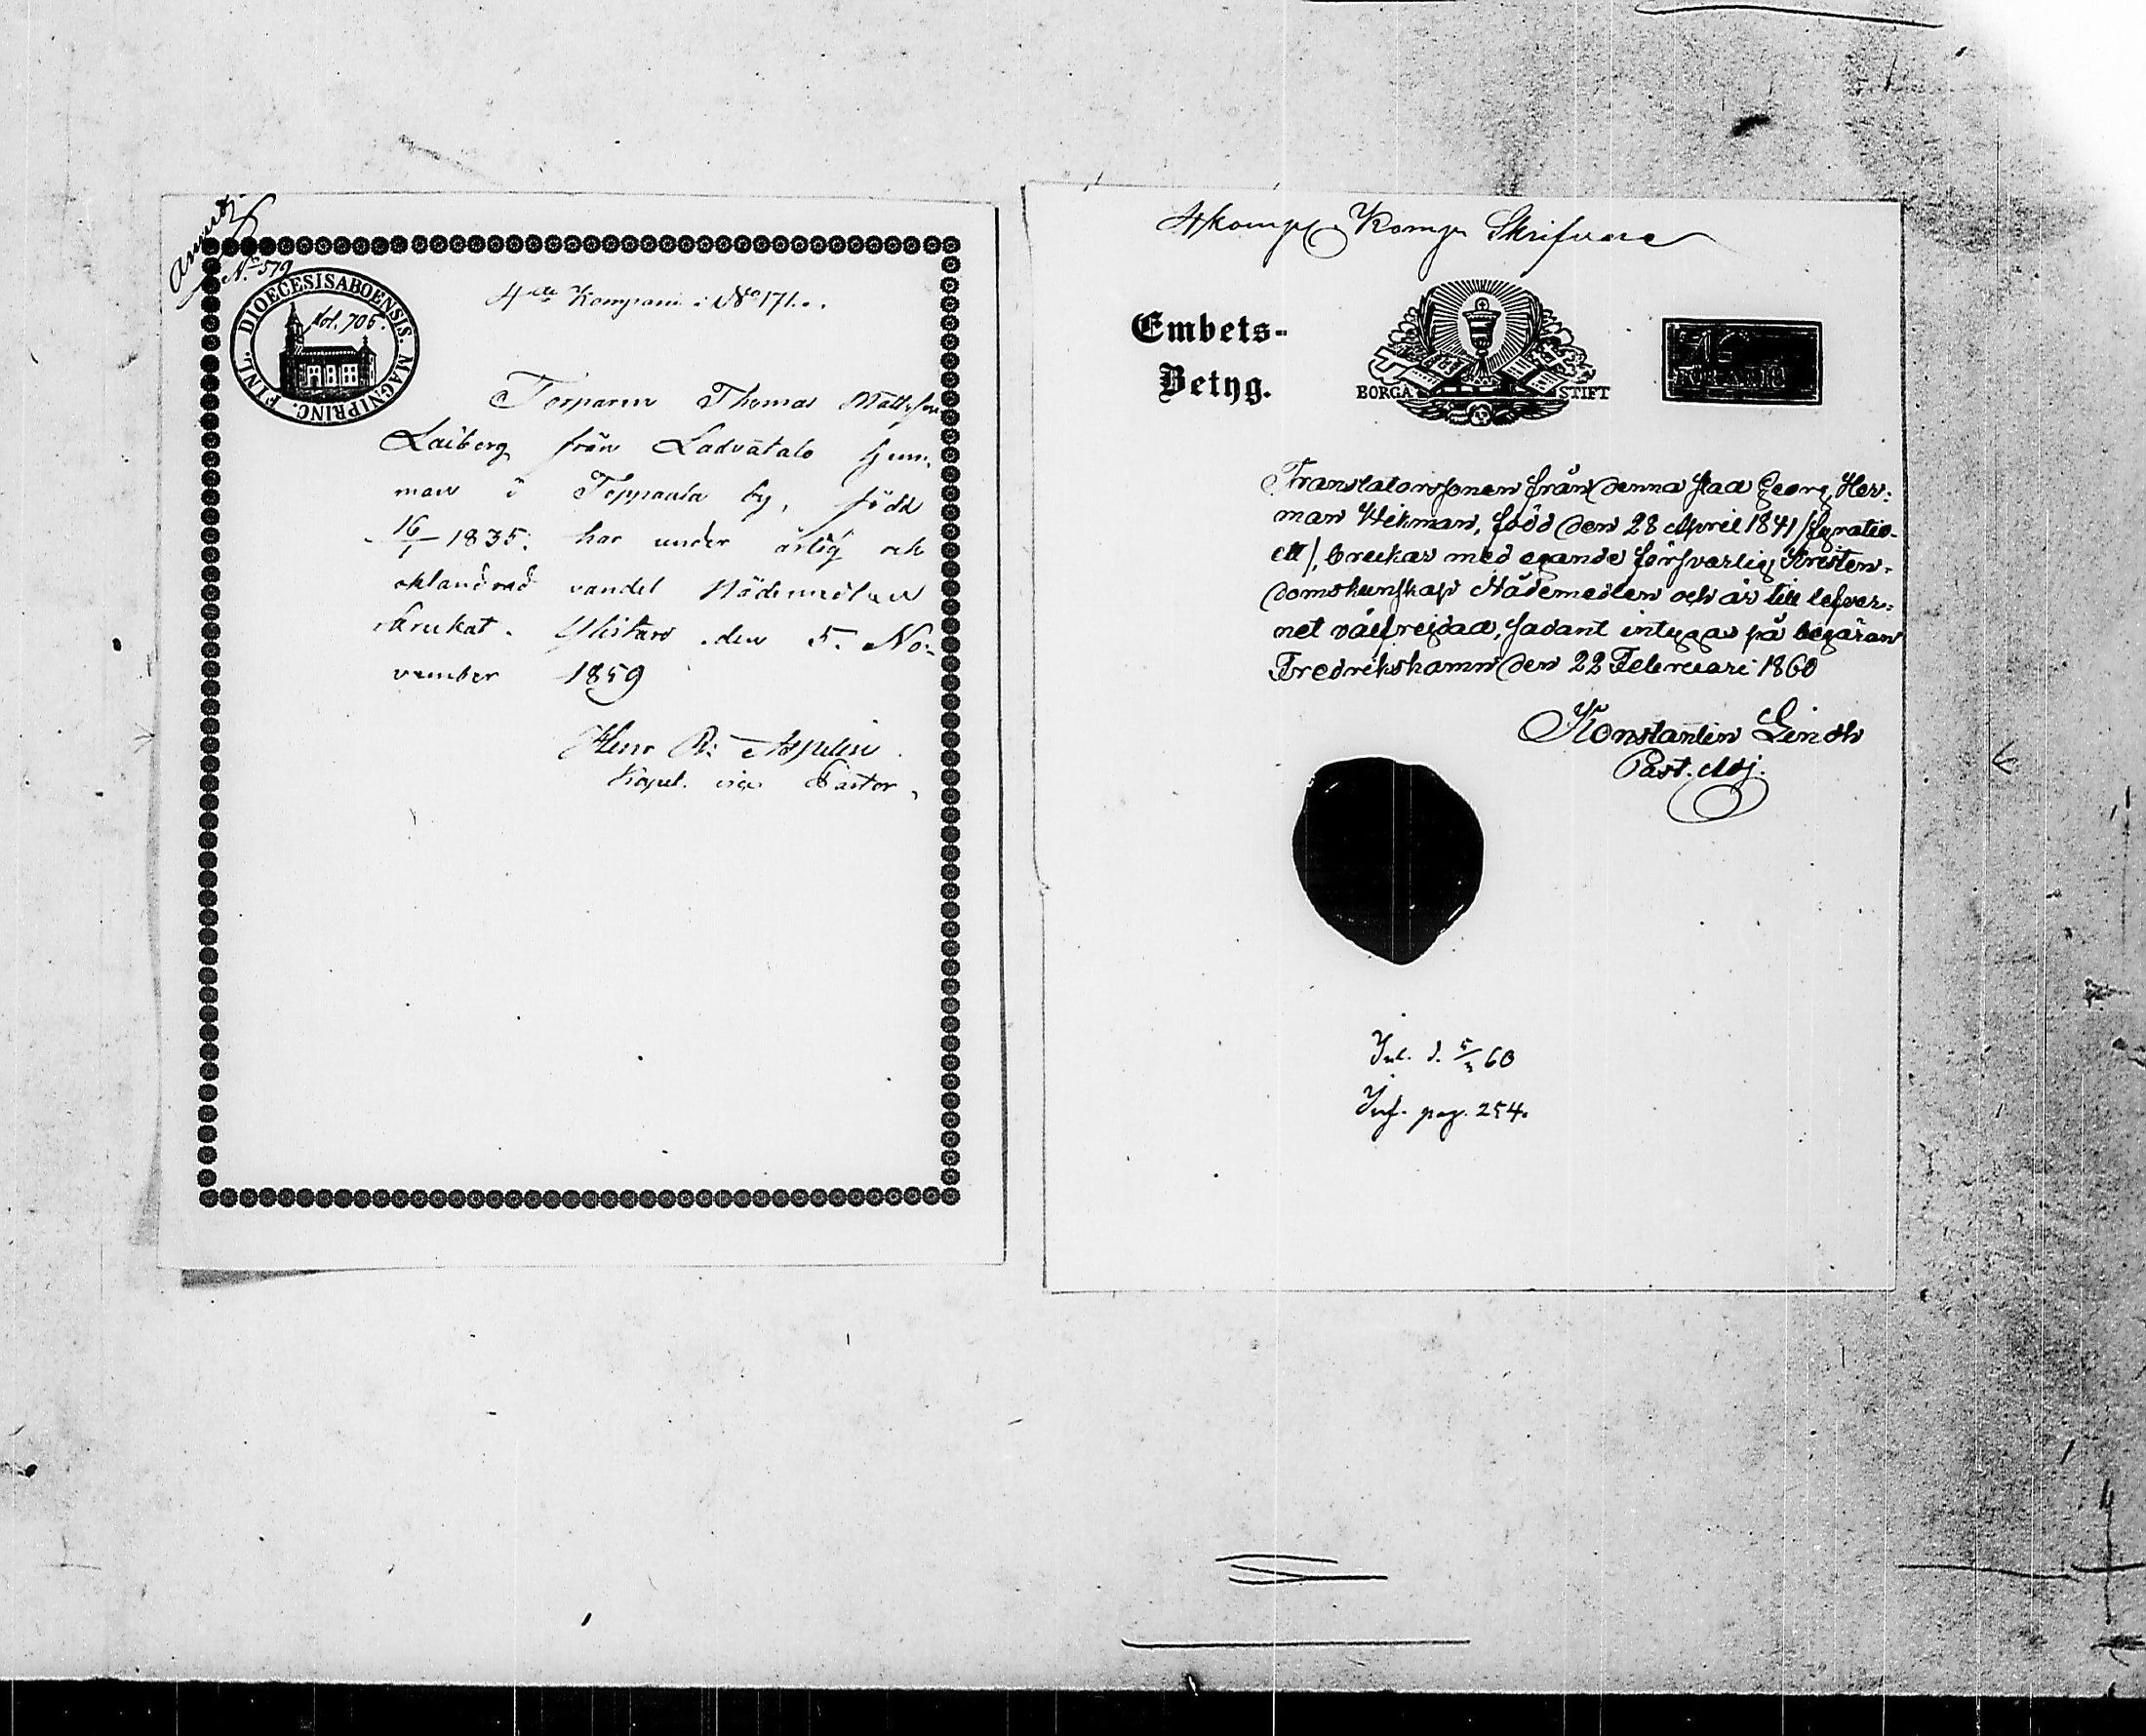 No 579
DIOECESISABOENSIS. MAGNIPRINC. FINL.
fol. 706.
4de Kompani: No 171.
Torparen Thomas Mattsson
Laiberg från Ladvatalo hem-
man i Teppaala by, född
16/1 1835. har under ärlig och
oklandrad vandel Nådemedlen
brukat. den 5. No-
vember 1859
Henr R: Aspelin
Kapel. vice Pastor.
4 komp. Komp. Skrifvare
Embets-
Betyg.
BORGÅ STIFT
Translatorssonen från denna stad Georg Her-
man Wikman, född den 28 April 1841
ett/, brukar med egande försvarlig Kristen-
domskunskap Nådemedlen och är till lefver-
net välfrejdad, sådant intygas på begäran
Fredrikshamn den 22 Februari 1860
Konstantin Lindh
Past. Adj.
Inl. d. 5/3 60
Inf. pag. 254.